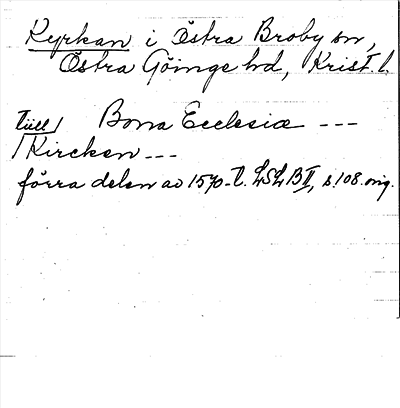 Kyrkan i Östra Broby sn,
Östra Göinge hd, Krist. l.
tüll/ Bona Ecclesiæ ---
/Kircken ---
förra delen av 1570-t. LSLB II, s. 108. orig.